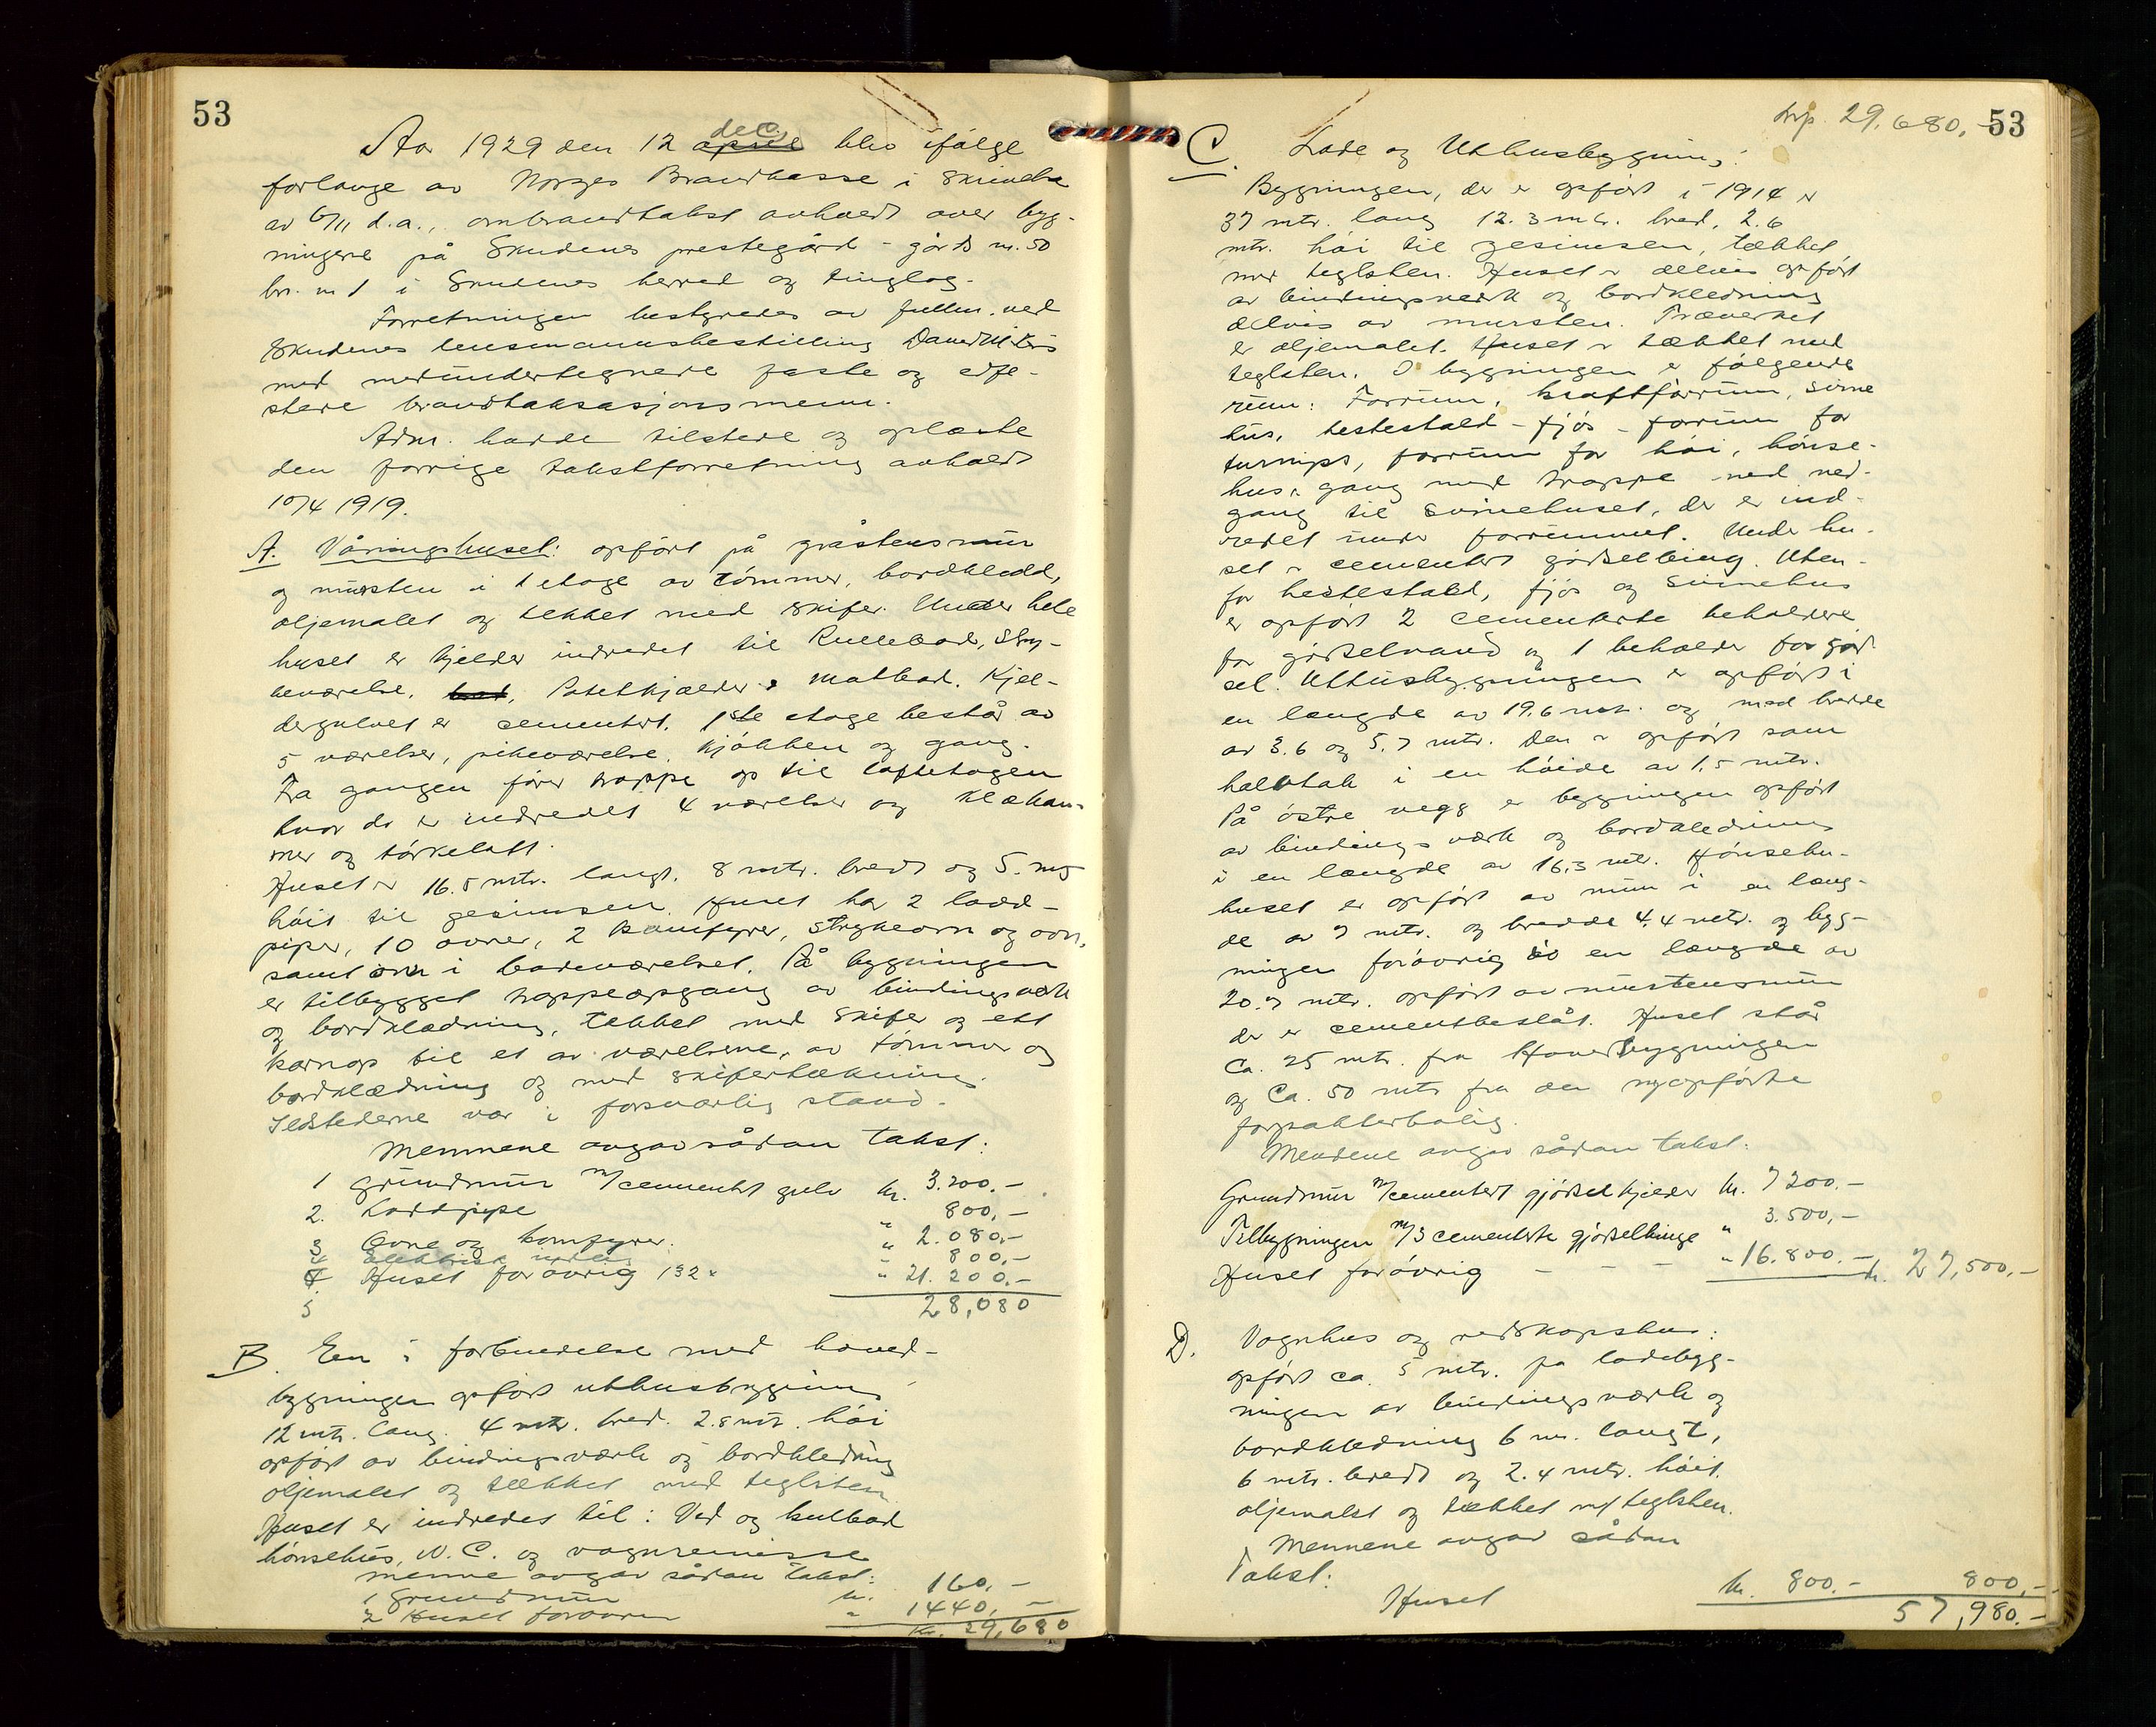 53
Aar 1929 den 12 april dec. blev ifølge
forlange av Norges Brandkasse i skrivelse
av 6/11 d.a., ombrandtakst avholdt over byg-
ningene på Skudenes prestegård - gårds nr. 50
br. nr 1 i Skudenes herred og tinglag.
Forretningen bestyredes av fullm. ved
Skudenes lensmannsbestilling
med medundertegnede faste og edfe-
stede brandtaksasjonsmenn.
Adm. hadde tilstede og oplæste
den forrige takstforretning avholdt
10/4 1919.
A. Våningshuset: opført på gråstensmur
og mursten i 1 etage av tømmer, bordkledd,
oljemalet og tekket med skifer. Under hele
huset er kjelder indredet til Rullebod, stry-
keværelse, Potetkjælder, matbod. Kjel-
dergulvet er cementert. 1ste etage består av
5 værelser, pikeværelse, kjøkken og gang.
Fra gangen fører trappe op til loftetagen
hvor der er indredet 4 værelser og klækam-
mer og tørkeloft.
Huset er 16.5 mtr. langt. 8 mtr. bredt og 5. mtr
høit til gesimsen. Huset har 2 lodd-
piper, 10 ovner, 2 komfyrer, strykeovn og ovn,
samt ovn i badeværelset. På bygningen
er tilbygget trappeopgang av bindingsverk
og bordklædning, tekket med skifer og ett
karnap til et av værelsene, av tømmer og
bordklædning og med skifertækning.
Ildstederne var i forsvarlig stand.
Mennene avgav sådan takst:
1 Grundmur m/cementert gulv kr. 3.200.-
2. Loddpipe " 800,-
3 Ovne og komfyrer. " 2.080,-
4 Elektrisk indlæg " 800,-
5 Huset forøvrig 132 " 21.200.-
28,080
B. En i forbindelse med hoved-
bygningen opført uthusbygning
12 mtr. lang. 4 mtr. bred. 2.8 mtr. høi
opført av bindingsværk og bordkledning
oljemalet og tækket med teglsten.
Huset er indredet til: Ved og kulbod
hønsehus, W.C. og vognremisse
menne avgav sådan takst:
1 Grundmur kr. 160.-
2 Huset forøvrig " 1440,-
kr. 29,680
trp. 29.680,- 53
C. Lade og Uthusbygning:
Bygningen, der er opført i 1914 er
37 mtr. lang 12.3 mtr. bred, 2.6
mtr. høi til gesimsen, tækket
med teglsten. Huset er delvis opført
av bindingsverk og bordkledning
delvis av mursten. Træverket
er oljemalet. Huset er tækket med
teglsten. I bygningen er følgende
rum: Forrum, kraftforrum, svine
hus, hestestald - fjøs - forrum for
turnips, forrum for høi, hønse-
hus, gang med trappe med ned-
gang til svinehuset, der er ind-
redet under forrummet. Under hu-
set er cementert gjødselbing. Uten-
for hestestald, fjøs og svinehus
er opført 2 cementerte beholdere
for gjødselvand og 1 beholder for gjød
sel. Uthusbygningen er opført i
en længde av 19.6 mtr. og med bredde
av 3.6 og 5.7 mtr. Den er opført som
halvtak i en høide av 1.5 mtr.
På østre vegg er bygningen opført
av bindingsværk og bordkledning
i en længde av 16,3 mtr. Hønsehu-
huset er opført av mur i en læng-
de av 7 mtr. og bredde 4,4 mtr. og byg-
ningen forøvrig i en længde av
20.7 mtr. opført av murstensmur
der er cementbeslåt. Huset står
ca. 25 mtr. fra Hovedbygningen
og ca. 50 mtr fra den nyopførte
forpakterbolig.
Mendene avgav sådan takst.
Grundmur m/cementert gjødselkjelder kr. 7200.-
Tilbygningen m/3 cementerte gjødselbinge " 3.500,-
Huset forøvrig - - - " 16.800.- kr. 27,500,-
D. Vognhus og redskapshus:
opført ca. 5 mtr. fra ladebyg-
ningen av bindingsværk og
bordkledning 6 m. langt,
6 mtr. bredt og 2.4 mtr. høit.
oljemalet og tækket m/ teglsten.
Mennene avgav sådan
Takst:
Huset kr. 800.- 800,-
57,980.-